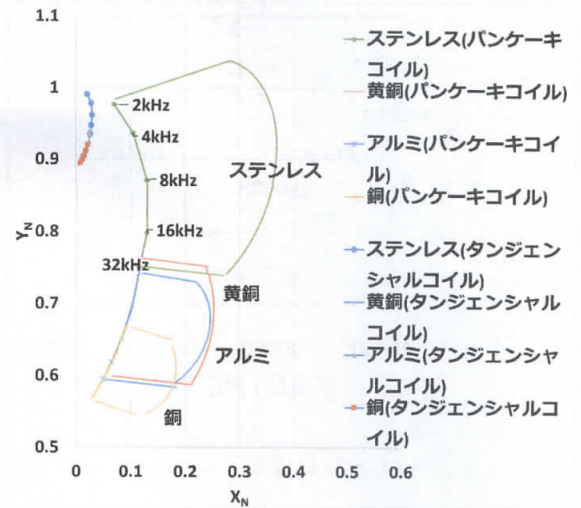 1.1
1
0.9
0.8
0.7
0.6
0.5
Y_N
0
0.1
0.2
0.3
0.4
0.5
0.6
X_N
2kHz
4kHz
8kHz
16kHz
32kHz
ステンレス
黄銅
アルミ
銅
ステンレス(パンケーキ
コイル)
黄銅(パンケーキコイル)
アルミ(パンケーキコイ
ル)
銅(パンケーキコイル)
ステンレス(タンジェン
シャルコイル)
黄銅(タンジェンシャル
コイル)
アルミ(タンジェンシャ
ルコイル)
銅(タンジェンシャルコ
イル)